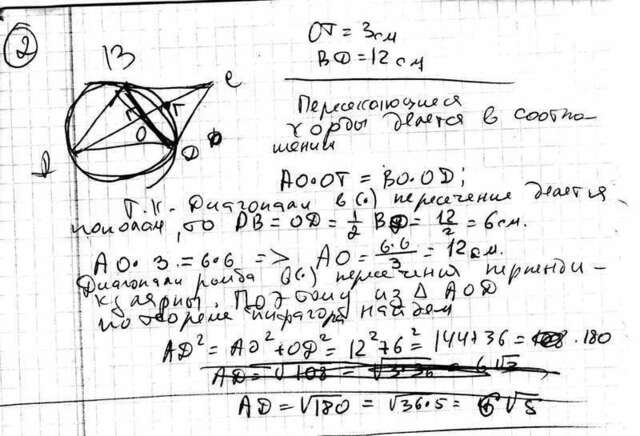 2
B
C
A
O
T
D
OT = 3см
BD = 12 см
Пересекающиеся
хорды делятся в соотно-
шении
AO·OT = BO·OD;
Т.к. Диагонали в (·) пересечение делятся
пополам, то DB = OD = 1/2 BD = 12/2 = 6см.
AO·3 = 6·6 => AO = 6·6/3 = 12см.
Диагонали ромба в (·) пересечения перпенди-
кулярны. Поэтому из Δ AOD
по теореме пифагора найдем
AD² = AO² + OD² = 12² + 6² = 144 + 36 = 180
AD = √108 = √3·36 = 6√3
AD = √180 = √36·5 = 6√5